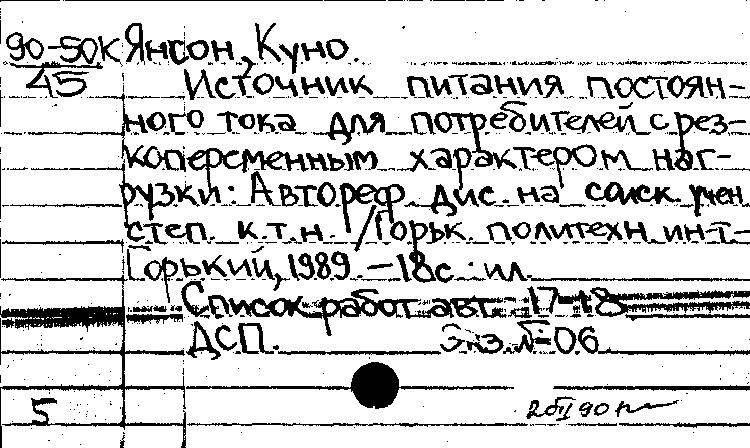 90-50К Янсон, Куно.
45 Источник питания постоян-
ного тока для потребителей с рез-
копеременным характером наг-
рузки: Автореф. дис. на соиск. учен
степ. к.т.н. /Горьк. политехн. ин-т-
Горький, 1989. -18с. ил.
Список работ авт. 17-18
ДСП. Экз. №06
5